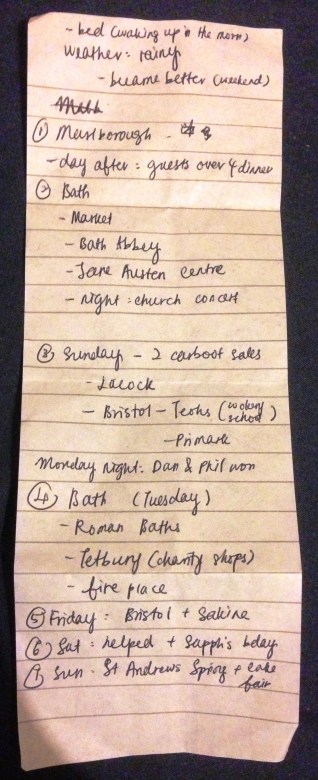 - bed (waking up in the morn)
Weather: rainy
- became better (weekend)
① Marlborough -
- day after: guests over 4 dinner
② Bath
- Market
- Bath Abbey
- Jane Austen centre
- night: church concert
③ Sunday - 2 carboot sales
- Lacock
- Bristol - Teohs (cookery school)
- Primark
Monday night: Dan & Phil won
④ Bath (Tuesday)
- Roman Baths
- Tetbury (charity shops)
- fire place
⑤ Friday: Bristol + Sakina
⑥ Sat: helped + Sapph's bday
⑦ Sun. St Andrews Spring + cake fair